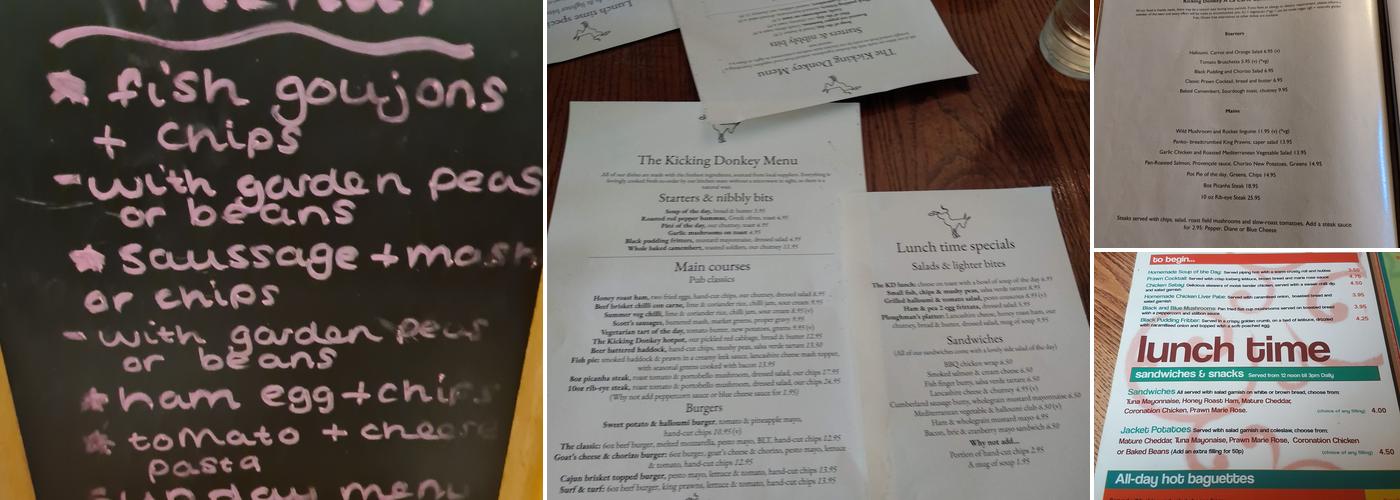 * fish goujons
+ chips
- with garden peas
or beans
* saussage + mash
or chips
- with garden peas
or beans
* ham egg + chips
* tomato + cheese
pasta
Sunday menu
Lunch time
Starters & nibbly bits
The Kicking Donkey Menu
The Kicking Donkey Menu
All of our dishes are made with the freshest ingredients, sourced from local suppliers. Everything is
lovingly cooked fresh to order by our kitchen team without a microwave in sight, so there is a
natural wait.
Starters & nibbly bits
Soup of the day, bread & butter 5.95
Roasted red pepper hummus, Greek olives, toast
Pâté of the day, our chutney, toast
Garlic mushrooms on toast 4.95
Black pudding fritters, mustard mayonnaise, dressed salad
Whole baked camembert, toasted soldiers, our chutney 11.95
Main courses
Pub classics
Honey roast ham, two fried eggs, hand-cut chips, our chutney, dressed salad 8.95
Beef brisket chilli con carne, lime & coriander rice, chilli jam, sour cream
Summer veg chilli, lime & coriander rice, chilli jam, sour cream 8.95 (v)
Scott's sausages, buttered mash, market greens, proper gravy 9.95
Vegetarian tart of the day, tomato butter, new potatoes, greens 9.95 (v)
The Kicking Donkey hotpot, our pickled red cabbage, bread & butter 12.95
Beer battered haddock, hand-cut chips, mushy peas, salsa verde tartare 13.50
Fish pie: smoked haddock & prawn in a creamy leek sauce, lancashire cheese mash topper,
with seasonal greens cooked with bacon 13.95
8oz picanha steak, roast tomato & portobello mushroom, dressed salad, our chips 17.95
10oz rib-eye steak, roast tomato & portobello mushroom, dressed salad, our chips 24.95
(Why not add peppercorn sauce or blue cheese sauce for 1.95)
Burgers
Sweet potato & halloumi burger, tomato & pineapple mayo,
hand-cut chips 10.95 (v)
The classic: 6oz beef burger, melted mozzarella, pesto mayo, BLT, hand-cut chips 12.95
Goat's cheese & chorizo burger: 6oz burger, goat's cheese & chorizo, pesto mayo, lettuce
& tomato, hand-cut chips 12.95
Cajun brisket topped burger, pesto mayo, lettuce & tomato, hand-cut chips 13.95
Surf & turf: 6oz beef burger, king prawns, lettuce & tomato, hand-cut chips 13.95
Lunch time specials
Salads & lighter bites
The KD lunch: cheese on toast with a bowl of soup of the day 6.95
Small fish, chips & mushy peas, salsa verde tartare 8.95
Grilled halloumi & tomato salad, pesto couscous 8.95 (v)
Ham & pea 2 egg frittata, dressed salad 5.95
Ploughman's platter: Lancashire cheese, honey roast ham, our
chutney, bread & butter, dressed salad, mug of soup 9.95
Sandwiches
(All of our sandwiches come with a lovely side salad of the day)
BBQ chicken wrap 6.50
Smoked salmon & cream cheese 6.50
Fish finger butty, salsa verde tartare 6.50
Lancashire cheese & chutney 4.95 (v)
Cumberland sausage butty, wholegrain mustard mayonnaise 6.50
Mediterranean vegetable & halloumi club 6.50 (v)
Ham & wholegrain mustard mayo 4.95
Bacon, brie & cranberry mayo sandwich 6.50
Why not add...
Portion of hand-cut chips 2.95
A mug of soup 1.95
Starters
Halloumi, Carrot and Orange Salad 6.95 (v)
Tomato Bruschetta 5.95 (v) (*vg)
Black Pudding and Chorizo Salad 6.95
Classic Prawn Cocktail, bread and butter 6.95
Baked Camembert, Sourdough toast, chutney 9.95
Mains
Wild Mushroom and Rocket linguine 11.95 (v) (*vg)
Panko- breadcrumbed King Prawns, caper salad 13.95
Garlic Chicken and Roasted Mediterranean Vegetable Salad 13.95
Pan-Roasted Salmon, Provençale sauce, Chorizo New Potatoes, Greens 14.95
Pot Pie of the day, Greens, Chips 14.95
8oz Picanha Steak 18.95
10 oz Rib-eye Steak 25.95
Steaks served with chips, salad, roast field mushrooms and slow-roast tomatoes. Add a steak sauce
for 2.95: Pepper, Diane or Blue Cheese
to begin...
Homemade Soup of the Day: Served piping hot with a warm crusty roll and butter 3.50
Prawn Cocktail: Served with crisp iceberg lettuce, brown bread and marie rose sauce 4.75
Chicken Satay: Delicious skewers of moist tender chicken, served with a sweet chilli dip
and salad garnish 4.50
Homemade Chicken Liver Pate: Served with caramelised onion, toasted bread and
salad garnish 3.95
Black and Blue Mushrooms: Pan fried flat cup mushrooms served on toasted bread
with a peppercorn and stilton sauce 3.95
Black Pudding Fritter: Served in a crispy golden crumb, on a bed of lettuce, drizzled
with caramelised onion and topped with a soft poached egg 4.25
lunch time
sandwiches & snacks Served from 12 noon til 3pm Daily
Sandwiches All served with salad garnish on white or brown bread, choose from:
Tuna Mayonnaise, Honey Roast Ham, Mature Cheddar,
Coronation Chicken, Prawn Marie Rose. (choice of any filling) 4.00
Jacket Potatoes Served with salad garnish and coleslaw, choose from:
Mature Cheddar, Tuna Mayonaise, Prawn Marie Rose, Coronation Chicken
or Baked Beans (Add an extra filling for 50p) (choice of any filling) 4.50
All-day hot baguettes